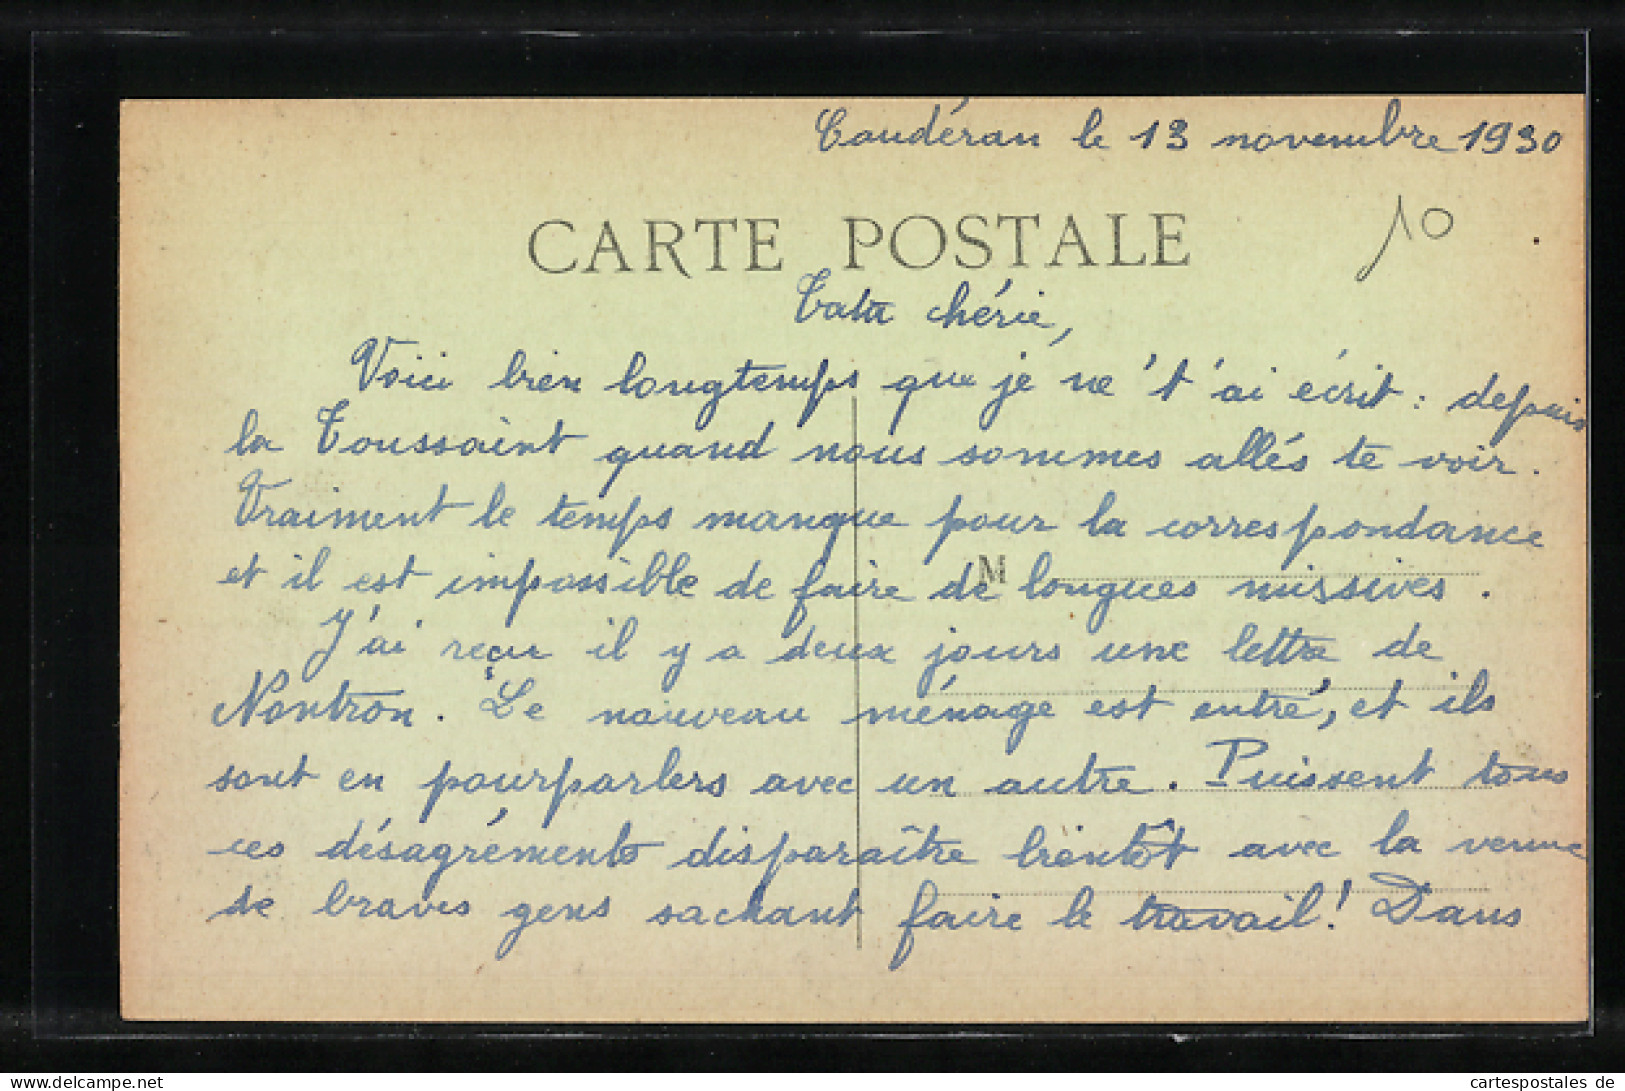 Caudéran le 13 novembre 1930
CARTE POSTALE
10
Tata chérie,
Voici bien longtemps que je ne t'ai écrit : depuis
la Toussaint quand nous sommes allés te voir.
Vraiment le temps manque pour la correspondance
M
et il est impossible de faire de longues missives.
J'ai reçu il y a deux jours une lettre de
Nontron. Le nouveau ménage est entré, et ils
sont en pourparlers avec un autre. Puissent tous
ces désagréments disparaître bientôt avec la venue
de braves gens sachant faire le travail! Dans
www.cartespostales.de
cartespostales de